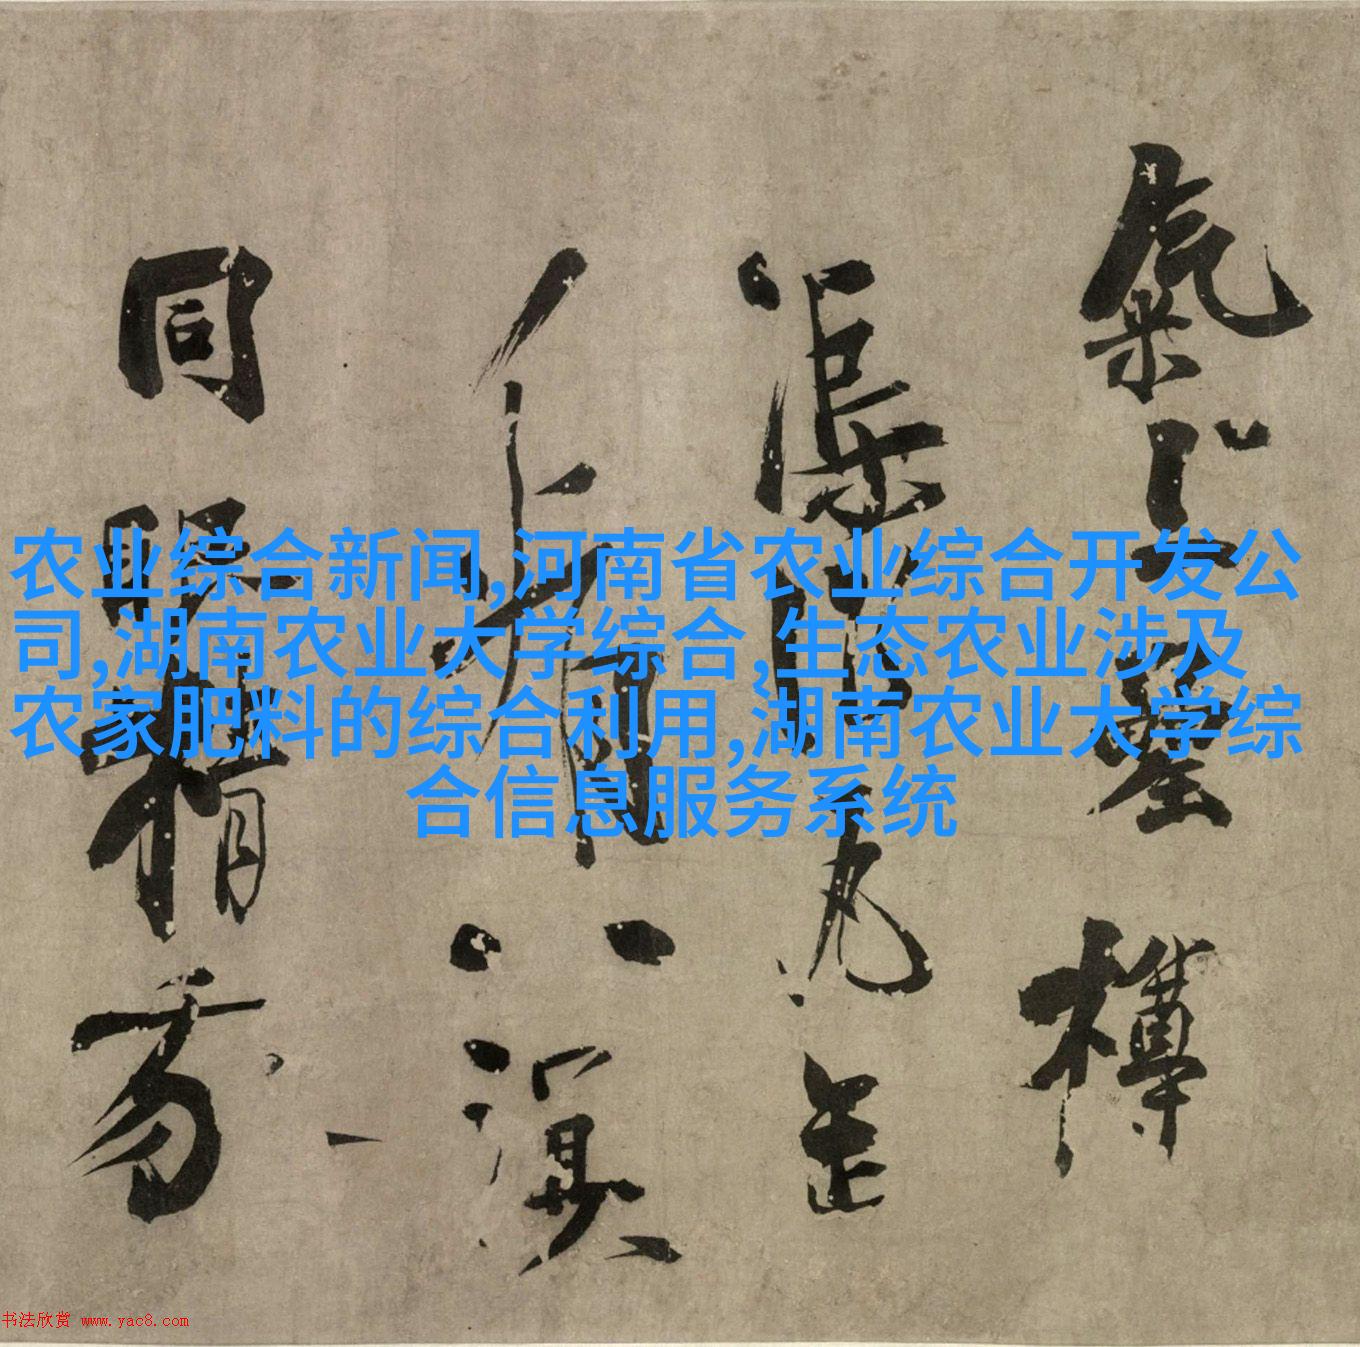 农业综合新闻,河南省农业综合开发公
司,湖南农业大学综合,生态农业涉及
农家肥料的综合利用,湖南农业大学综
合信息服务系统
氣上樽
渠
八溟
同眼
书法欣赏 www.yac8.com